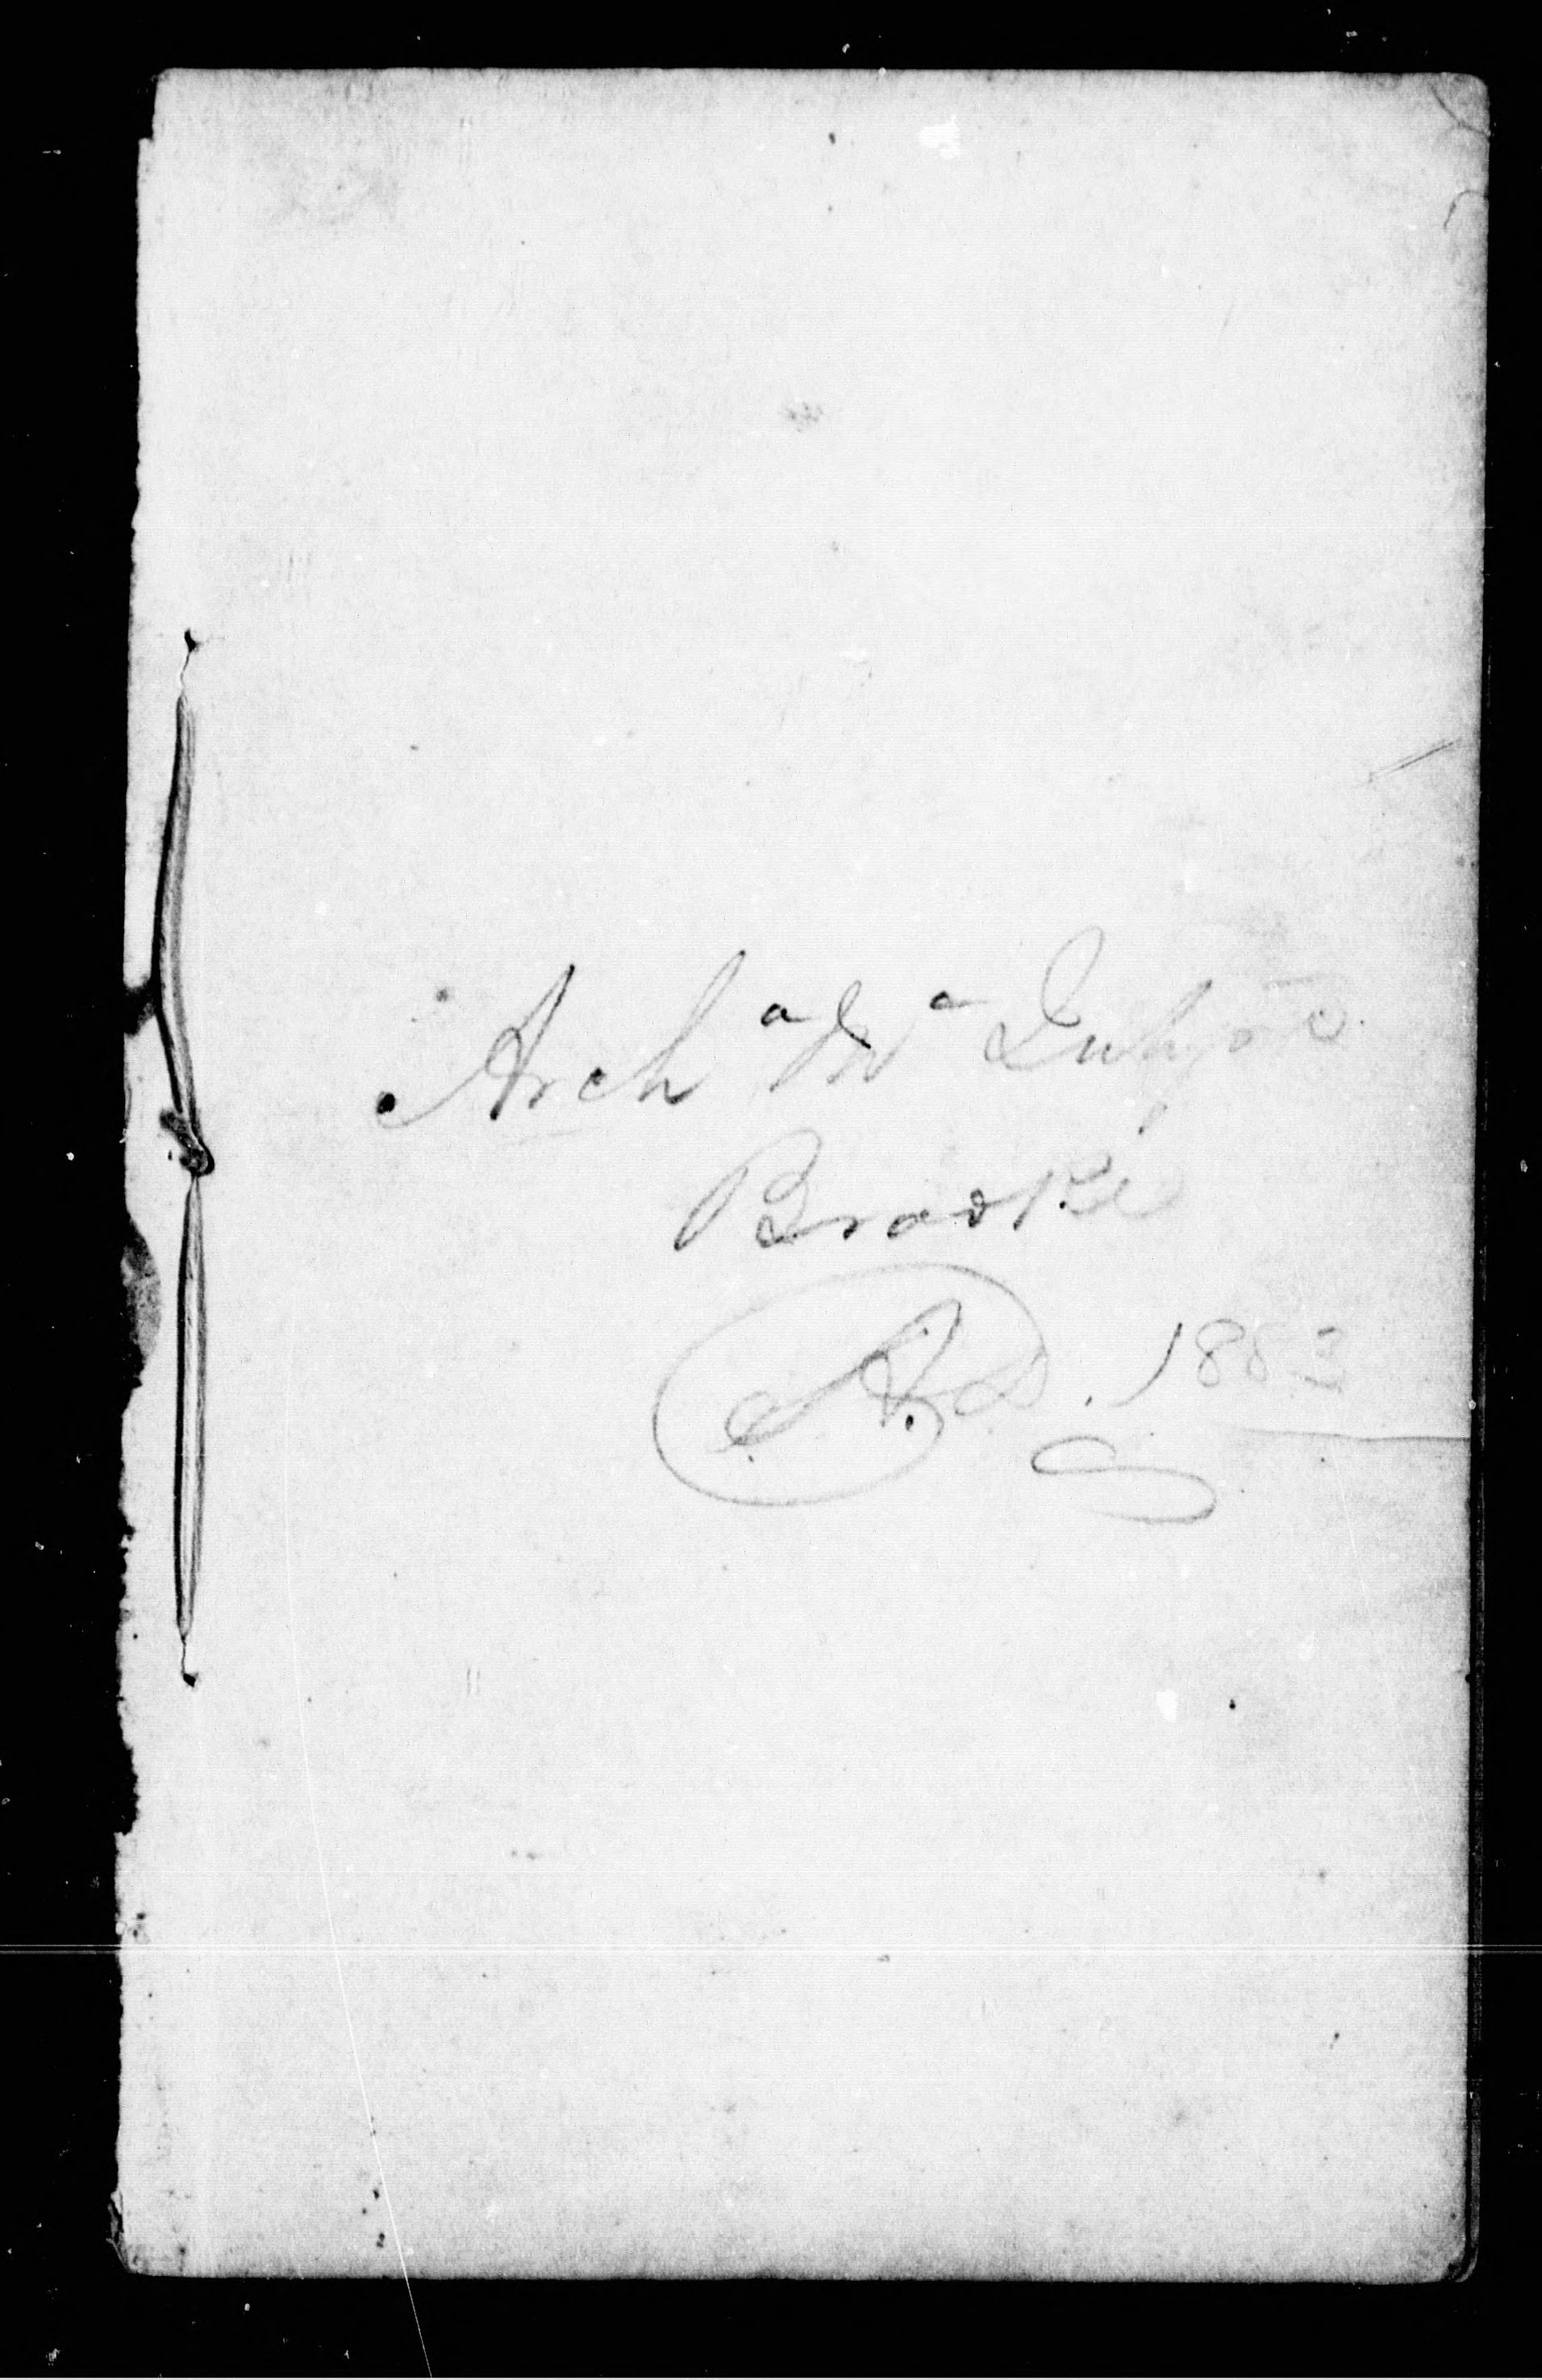 Arch^a Mc^a Intyre
Brooke
A.D. 1883